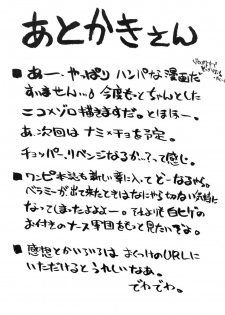 あとがきさん
■ あー、やっぱり ハンパな漫画だ
すいません…。今度もっとちゃんとした
ニコメゾロ描きますだ。とほほー。
あ、次回は ナミ×チョを予定。
チョッパー、リベンジなるか…?って感じ。
■ ワンピ本誌も新しい章に入って どーなるやら。
ベラミーが出て来たときはなにやら切ない気持に
なってしまったよよよー。てゆよりも白ヒゲの
お付きのナース軍団をもっと見たいでぇ。
■ 感想とかいろいろは おくつけのURLに
いただけると うれしいなあ。
でわでわ。